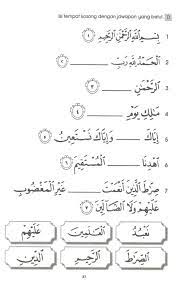 Isi tempat kosong dengan jawapan yang betul.
1 بِسْمِ اللَّهِ الرَّحْمَٰنِ الرَّحِيمِ ①
2 الْحَمْدُ لِلَّهِ رَبِّ ______ ②
3 الرَّحْمَٰنِ ______ ③
4 مَالِكِ يَوْمِ ______ ④
5 إِيَّاكَ ______ وَإِيَّاكَ نَسْتَعِينُ ⑤
6 اهْدِنَا ______ الْمُسْتَقِيمَ ⑥
7 صِرَاطَ الَّذِينَ أَنْعَمْتَ ______ غَيْرِ الْمَغْضُوبِ
عَلَيْهِمْ وَلَا الضَّالِّينَ ⑦
نَعْبُدُ الْعَالَمِينَ عَلَيْهِمْ
الصِّرَاطَ الرَّحِيمِ الدِّينِ